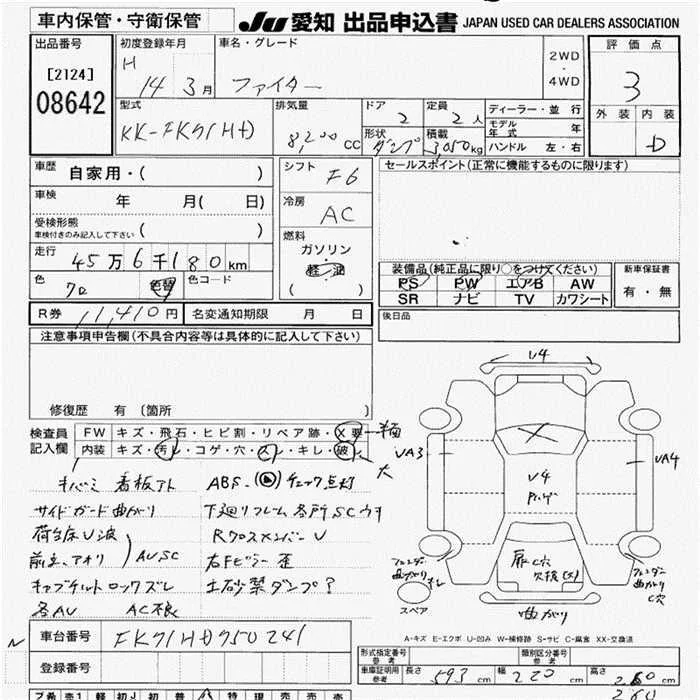 車内保管・守衛保管
JU 愛知 出品申込書 JAPAN USED CAR DEALERS ASSOCIATION
出品番号 初度登録年月 車名・グレード 評価点
H 2WD
[2124] 14 3月 ファイター ・ 3
08642 4WD
外装 内装
型式 排気量 ドア 定員 ディーラー・並行
KK-FK71HD 8,200cc 2 2人 モデル年式 年 D
形状 積載 ハンドル 左・右
ダンプ 3,050kg
車歴 自家用・( ) シフト F6 セールスポイント(正常に機能するものに限ります)
車検 年 月( 日) 冷房 AC
受検形態 ( )
車検付きのみ記入して下さい
燃料
ガソリン
軽・油
( )
走行 45万6千180km
装備品(純正品に限り○をつけてください) 新車保証書
色 クロ 色替 色コード PS PW エアB AW 有・無
SR ナビ TV カワシート
R券 11,410円 名変通知期限 月 日 後日品
注意事項申告欄(不具合内容等は具体的に記入して下さい)
修復歴 有 〔箇所 〕
検査員 FW キズ・飛石・ヒビ割・リペア跡・X要
記入欄 内装 キズ・汚れ・コゲ・穴・スレ・キレ・破れ 大
キバミ 看板アト ABS チェック点灯
サイドガード曲がり 下廻リフレーム各所SCウキ
荷台床U波 RクロスメンバーU
前立、アオリ AU SC 右Fピラー歪
キャブチルトロックズレ 土砂禁ダンプ?
各AU AC不良
U4
UA3
UA4
U4
フェンダー曲がり
扉C穴
フェンダー曲がりC穴
スペア
曲がり
A-キズ E-エクボ U-凹み W-補修跡 S-サビ C-腐食 XX-交換済
車台番号 FK71HD750241
登録番号
形式指定番号 参考 類別区分番号 参考
車庫証明用 参考 長さ 593cm 幅 220cm 高さ 260cm
260